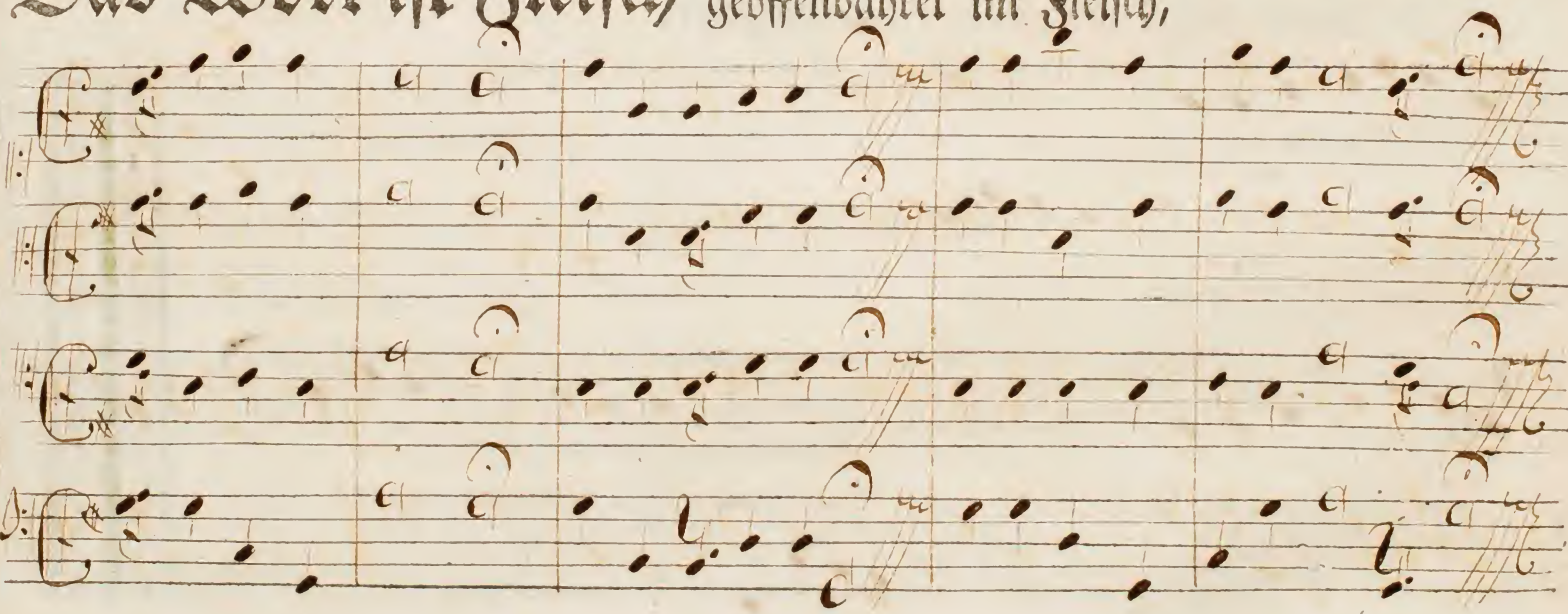 Das Wort ist Fleisch, geoffenbahret im Fleisch,